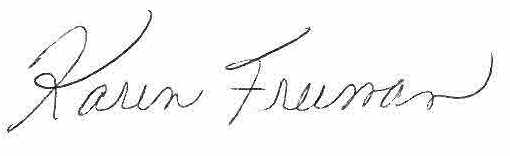 Karen Freeman